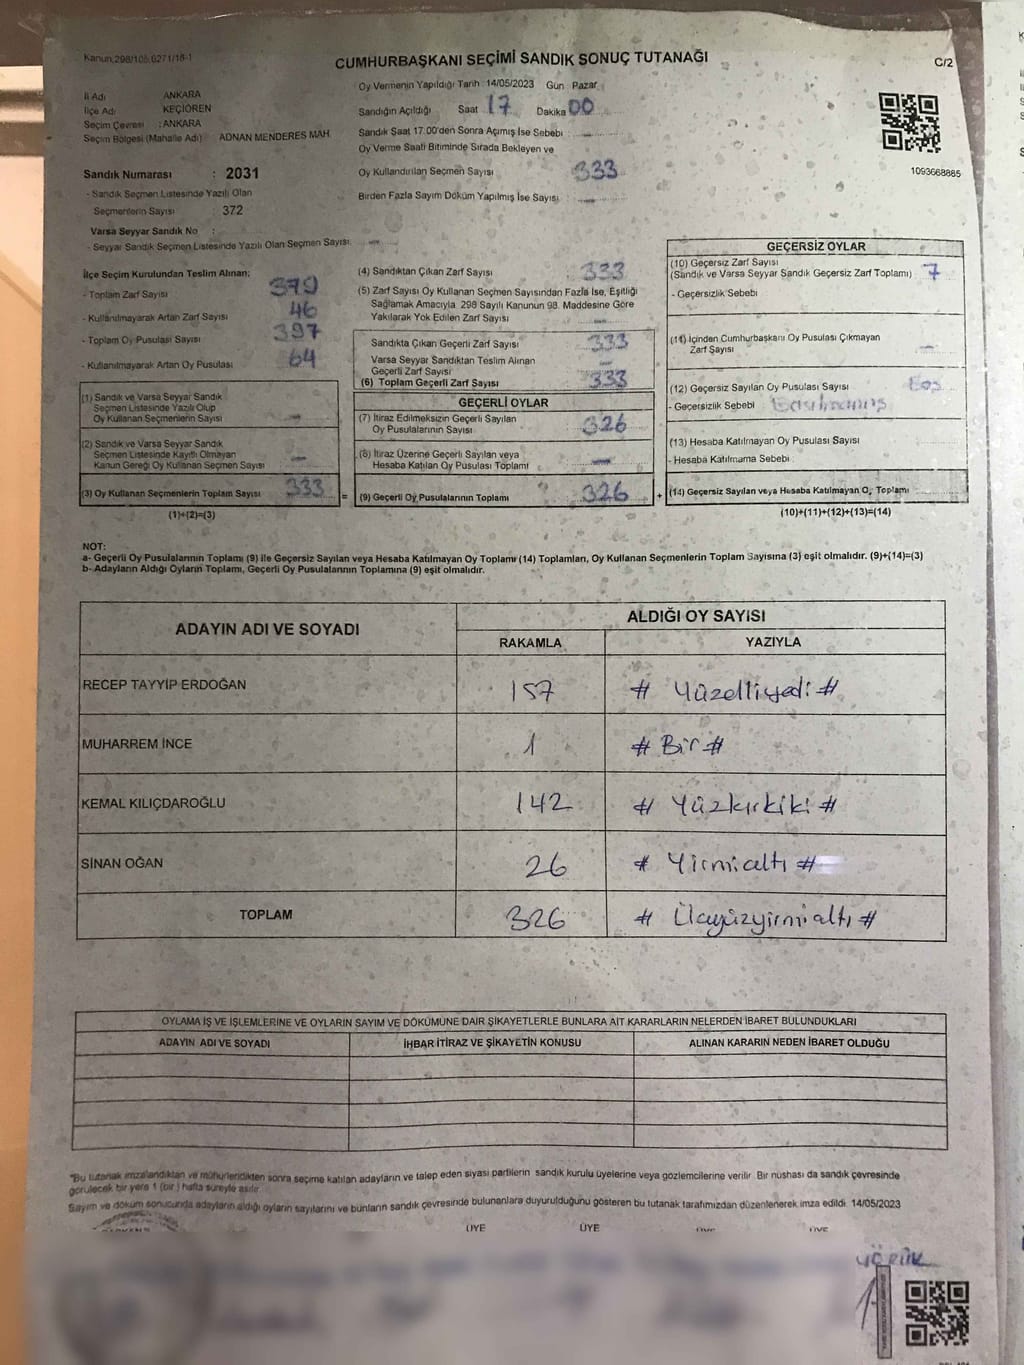 Kanun:298/105,0271/18-1
CUMHURBAŞKANI SEÇİMİ SANDIK SONUÇ TUTANAĞI
C/2
Oy Vermenin Yapıldığı Tarih 14/05/2023 Gün Pazar
İl Adı ANKARA
İlçe Adı KEÇİÖREN
Seçim Çevresi : ANKARA
Seçim Bölgesi (Mahalle Adı) ADNAN MENDERES MAH.
Sandığın Açıldığı Saat 17 Dakika 00
Sandık Saat 17.00'den Sonra Açımış İse Sebebi
Oy Verme Saati Bitiminde Sırada Bekleyen ve
Oy Kullandırılan Seçmen Sayısı 333
Birden Fazla Sayım Döküm Yapılmış İse Sayısı
1093668885
Sandık Numarası : 2031
- Sandık Seçmen Listesinde Yazılı Olan
Seçmenlerin Sayısı : 372
Varsa Seyyar Sandık No :
- Seyyar Sandık Seçmen Listesinde Yazılı Olan Seçmen Sayısı:
İlçe Seçim Kurulundan Teslim Alınan;
- Toplam Zarf Sayısı 379
- Kullanılmayarak Artan Zarf Sayısı 46
- Toplam Oy Pusulası Sayısı 397
- Kullanılmayarak Artan Oy Pusulası 64
(1) Sandık ve Varsa Seyyar Sandık
Seçmen Listesinde Yazılı Olup
Oy Kullanan Seçmenlerin Sayısı -
(2) Sandık ve Varsa Seyyar Sandık
Seçmen Listesinde Kayıtlı Olmayan
Kanun Gereği Oy Kullanan Seçmen Sayısı -
(3) Oy Kullanan Seçmenlerin Toplam Sayısı 333 =
(1)+(2)=(3)
(4) Sandıktan Çıkan Zarf Sayısı 333
(5) Zarf Sayısı Oy Kullanan Seçmen Sayısından Fazla İse, Eşitliği
Sağlamak Amacıyla 298 Sayılı Kanunun 98. Maddesine Göre
Yakılarak Yok Edilen Zarf Sayısı -
Sandıkta Çıkan Geçerli Zarf Sayısı 333
Varsa Seyyar Sandıktan Teslim Alınan
Geçerli Zarf Sayısı -
(6) Toplam Geçerli Zarf Sayısı 333
GEÇERLİ OYLAR
(7) İtiraz Edilmeksizin Geçerli Sayılan
Oy Pusulalarının Sayısı 326
(8) İtiraz Üzerine Geçerli Sayılan veya
Hesaba Katılan Oy Pusulası Toplamı -
(9) Geçerli Oy Pusulalarının Toplamı 326 +
GEÇERSİZ OYLAR
(10) Geçersiz Zarf Sayısı
(Sandık ve Varsa Seyyar Sandık Geçersiz Zarf Toplamı) 7
- Geçersizlik Sebebi
(11) İçinden Cumhurbaşkanı Oy Pusulası Çıkmayan
Zarf Sayısı -
(12) Geçersiz Sayılan Oy Pusulası Sayısı
- Geçersizlik Sebebi
(13) Hesaba Katılmayan Oy Pusulası Sayısı
- Hesaba Katılmama Sebebi
(14) Geçersiz Sayılan veya Hesaba Katılmayan Oy Toplamı
(10)+(11)+(12)+(13)=(14)
NOT:
a- Geçerli Oy Pusulalarının Toplamı (9) ile Geçersiz Sayılan veya Hesaba Katılmayan Oy Toplamı (14) Toplamları, Oy Kullanan Seçmenlerin Toplam Sayısına (3) eşit olmalıdır. (9)+(14)=(3)
b- Adayların Aldığı Oyların Toplamı, Geçerli Oy Pusulalarının Toplamına (9) eşit olmalıdır.
ADAYIN ADI VE SOYADI ALDIĞI OY SAYISI
RAKAMLA YAZIYLA
RECEP TAYYİP ERDOĞAN 157 # Yüzelliyedi #
MUHARREM İNCE 1 # Bir #
KEMAL KILIÇDAROĞLU 142 # Yüzkırkiki #
SİNAN OĞAN 26 # Yirmialtı #
TOPLAM 326 # Üçyüzyirmialtı #
OYLAMA İŞ VE İŞLEMLERİNE VE OYLARIN SAYIM VE DÖKÜMÜNE DAİR ŞİKAYETLERLE BUNLARA AİT KARARLARIN NELERDEN İBARET BULUNDUKLARI
ADAYIN ADI VE SOYADI İHBAR İTİRAZ VE ŞİKAYETİN KONUSU ALINAN KARARIN NEDEN İBARET OLDUĞU
"Bu tutanak imzalandıktan ve mühürlendikten sonra seçime katılan adayların ve talep eden siyasi partilerin sandık kurulu üyelerine veya gözlemcilerine verilir. Bir nüshası da sandık çevresinde
görülecek bir yere 1 (bir ) hafta süreyle asılır.
Sayım ve döküm sonucunda adayların aldığı oyların sayılarını ve bunların sandık çevresinde bulunanlara duyurulduğunu gösteren bu tutanak tarafımızdan düzenlenerek imza edildi. 14/05/2023
ÜYE ÜYE